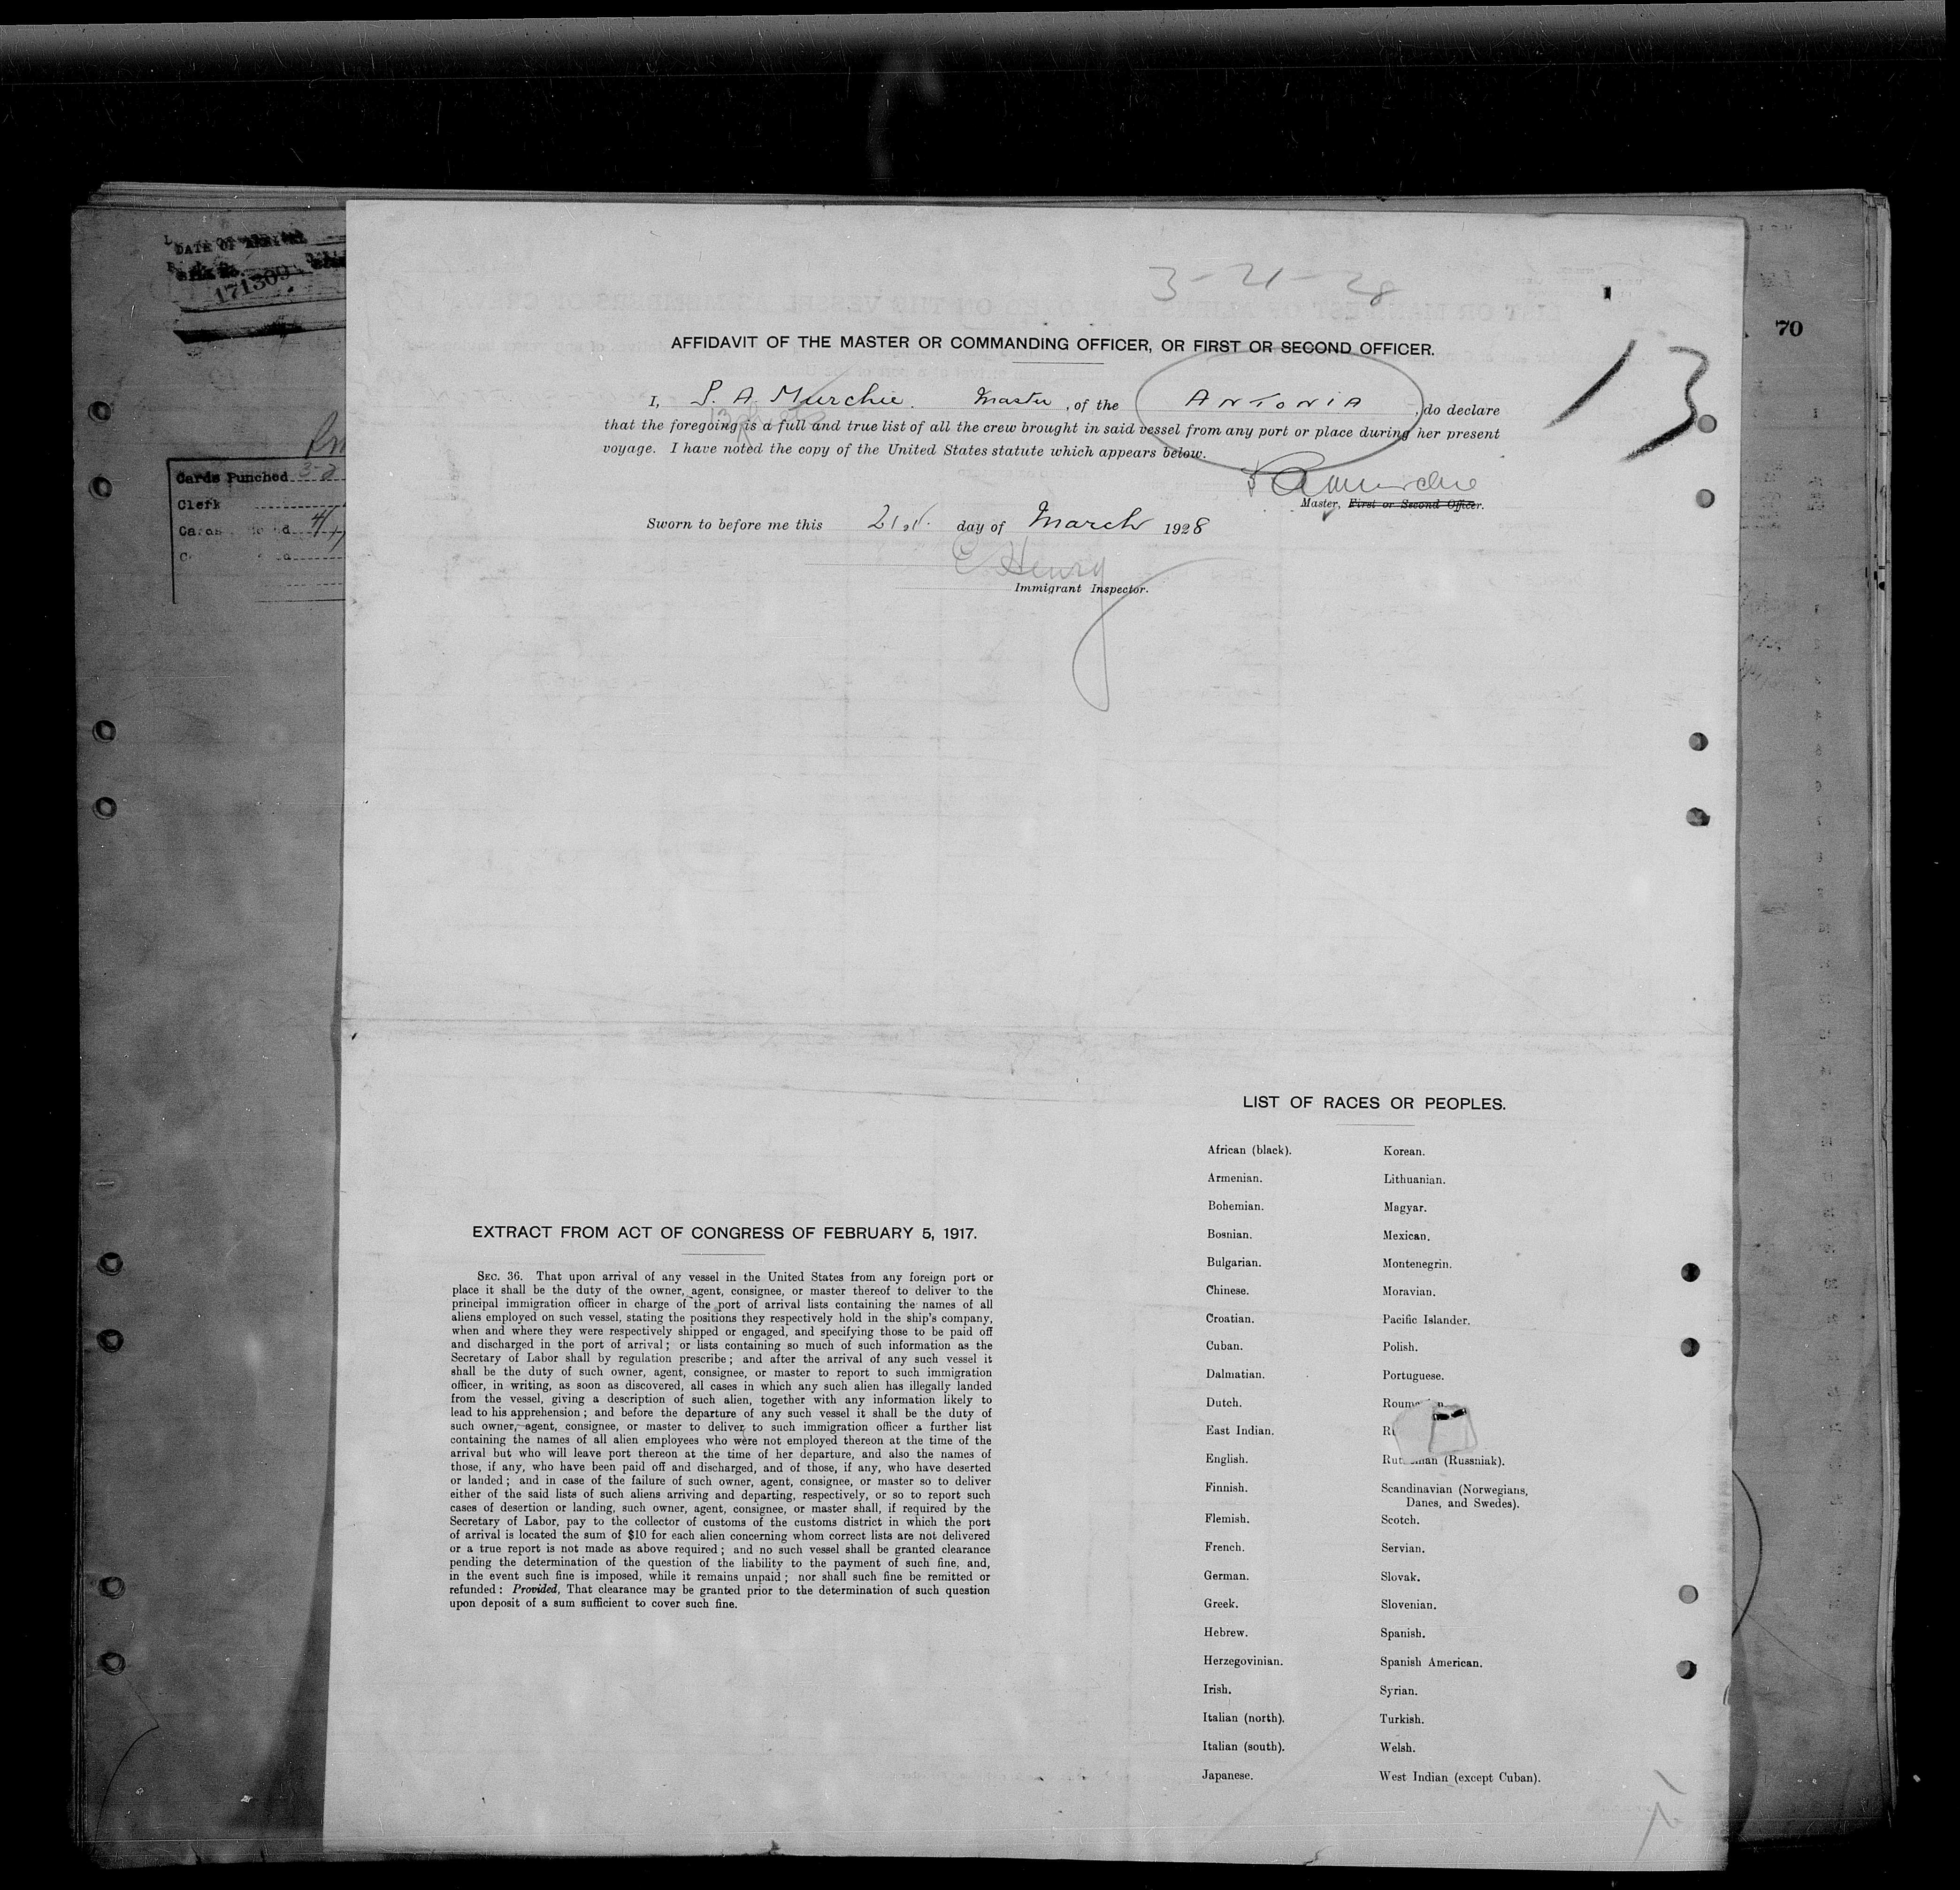 DATE OF ARRIVAL
171309
3-21-28
70
AFFIDAVIT OF THE MASTER OR COMMANDING OFFICER, OR FIRST OR SECOND OFFICER.
13
I, S. A. Murchie. Master, of the ANTONIA, do declare
that the foregoing is a full and true list of all the crew brought in said vessel from any port or place during her present
voyage. I have noted the copy of the United States statute which appears below.
Cards Punched 3-2
Clerk
Murchie
Master, First or Second Officer.
Sworn to before me this 21st. day of March 1928
E Henry
Immigrant Inspector.
LIST OF RACES OR PEOPLES.
African (black). Korean.
Armenian. Lithuanian.
Bohemian. Magyar.
Bosnian. Mexican.
Bulgarian. Montenegrin.
Chinese. Moravian.
Croatian. Pacific Islander.
Cuban. Polish.
Dalmatian. Portuguese.
Dutch.
East Indian.
English. (Russniak).
Finnish. Scandinavian (Norwegians,
Danes, and Swedes).
Flemish. Scotch.
French. Servian.
German. Slovak.
Greek. Slovenian.
Hebrew. Spanish.
Herzegovinian. Spanish American.
Irish. Syrian.
Italian (north). Turkish.
Italian (south). Welsh.
Japanese. West Indian (except Cuban).
EXTRACT FROM ACT OF CONGRESS OF FEBRUARY 5, 1917.
SEC. 36. That upon arrival of any vessel in the United States from any foreign port or
place it shall be the duty of the owner, agent, consignee, or master thereof to deliver to the
principal immigration officer in charge of the port of arrival lists containing the names of all
aliens employed on such vessel, stating the positions they respectively hold in the ship's company,
when and where they were respectively shipped or engaged, and specifying those to be paid off
and discharged in the port of arrival; or lists containing so much of such information as the
Secretary of Labor shall by regulation prescribe; and after the arrival of any such vessel it
shall be the duty of such owner, agent, consignee, or master to report to such immigration
officer, in writing, as soon as discovered, all cases in which any such alien has illegally landed
from the vessel, giving a description of such alien, together with any information likely to
lead to his apprehension; and before the departure of any such vessel it shall be the duty of
such owner, agent, consignee, or master to deliver to such immigration officer a further list
containing the names of all alien employees who were not employed thereon at the time of the
arrival but who will leave port thereon at the time of her departure, and also the names of
those, if any, who have been paid off and discharged, and of those, if any, who have deserted
or landed; and in case of the failure of such owner, agent, consignee, or master so to deliver
either of the said lists of such aliens arriving and departing, respectively, or so to report such
cases of desertion or landing, such owner, agent, consignee, or master shall, if required by the
Secretary of Labor, pay to the collector of customs of the customs district in which the port
of arrival is located the sum of $10 for each alien concerning whom correct lists are not delivered
or a true report is not made as above required; and no such vessel shall be granted clearance
pending the determination of the question of the liability to the payment of such fine, and,
in the event such fine is imposed, while it remains unpaid; nor shall such fine be remitted or
refunded: Provided, That clearance may be granted prior to the determination of such question
upon deposit of a sum sufficient to cover such fine.